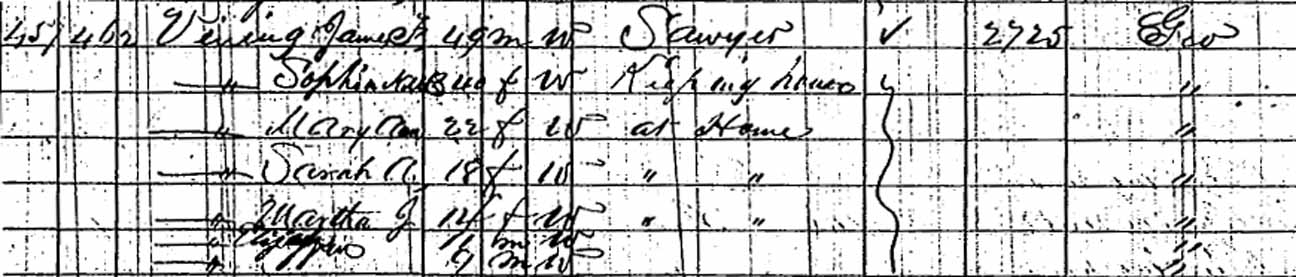 457 462 Vining James 49 m W Sawyer ✓ 2725 Geo
" 40 f W Keeping house "
" Mary Ann 22 f W at Home "
" Sarah A. 18 f W " " "
" Martha J 14 f W " " "
" m W "
" m W "